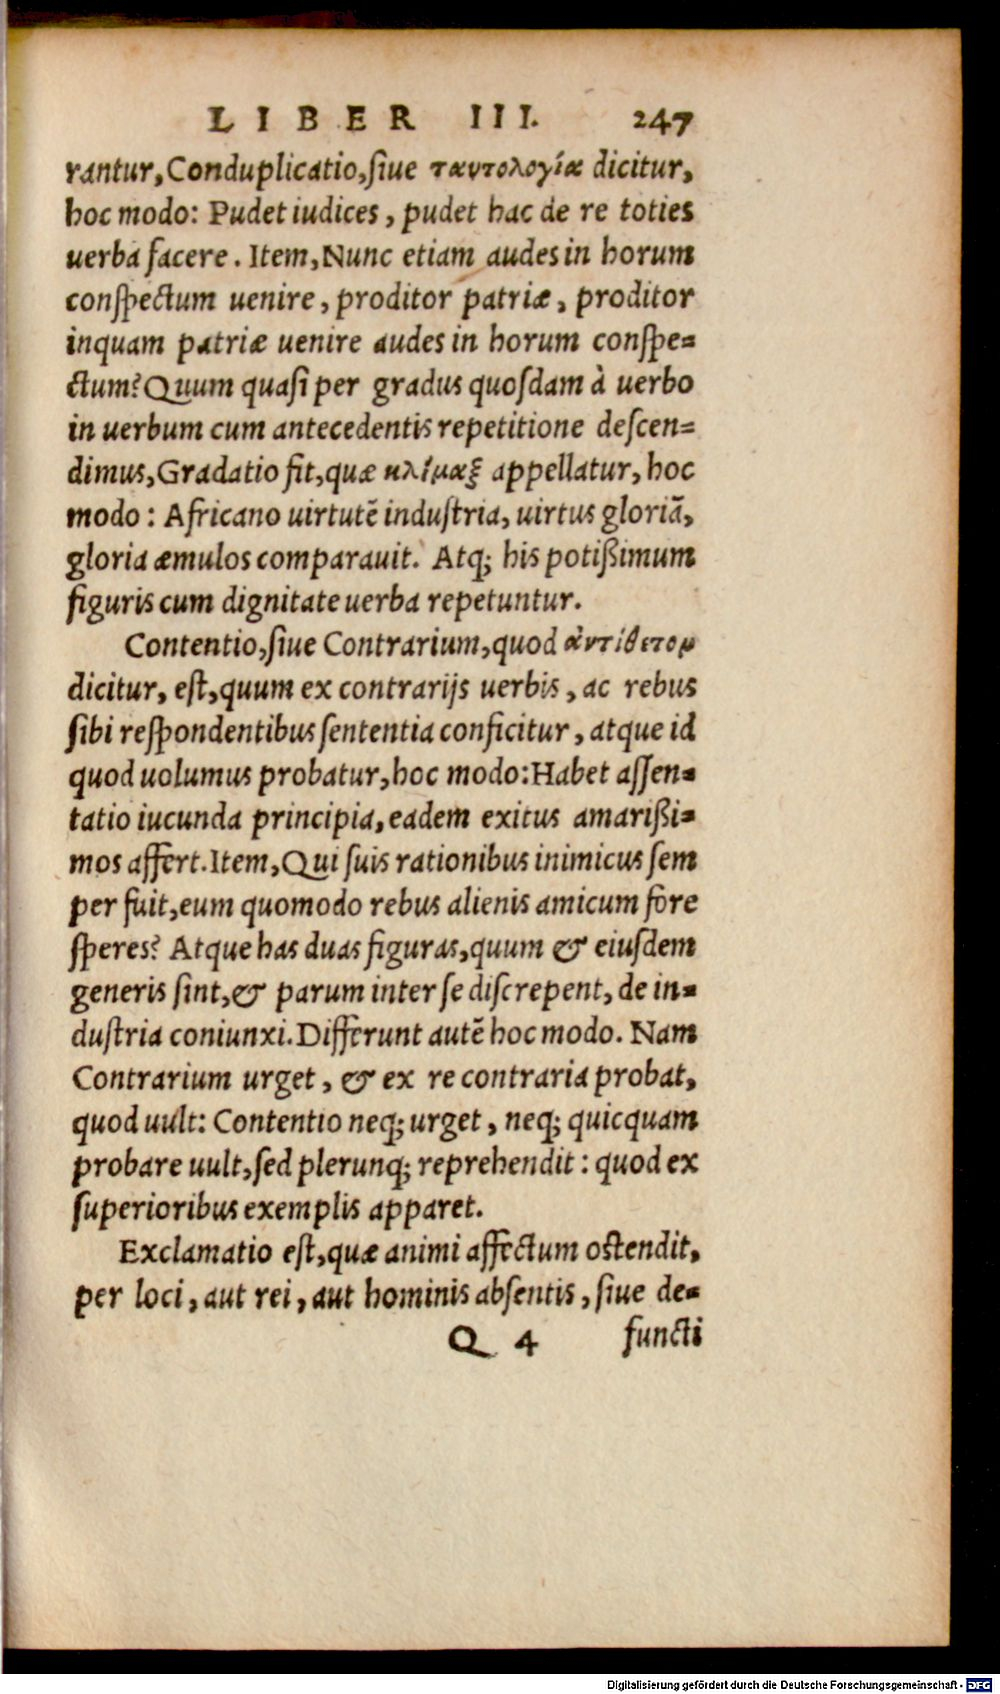 LIBER III. 247
rantur, Conduplicatio, ſiue ταυτολογία dicitur,
hoc modo: Pudet iudices, pudet hac de re toties
uerba facere. Item, Nunc etiam audes in horum
conſpectum uenire, proditor patriæ, proditor
inquam patriæ uenire audes in horum conſpe=
ctum? Quum quaſi per gradus quoſdam à uerbo
in uerbum cum antecedentis repetitione deſcen=
dimus, Gradatio fit, quæ κλίμαξ appellatur, hoc
modo: Africano uirtutē induſtria, uirtus gloriā,
gloria æmulos comparauit. Atq; his potißimum
figuris cum dignitate uerba repetuntur.
Contentio, ſiue Contrarium, quod ἀντίθετον
dicitur, eſt, quum ex contrarijs uerbis, ac rebus
ſibi reſpondentibus ſententia conficitur, atque id
quod uolumus probatur, hoc modo: Habet aſſen=
tatio iucunda principia, eadem exitus amarißi=
mos affert. Item, Qui ſuis rationibus inimicus ſem
per fuit, eum quomodo rebus alienis amicum fore
ſperes? Atque has duas figuras, quum & eiuſdem
generis ſint, & parum inter ſe diſcrepent, de in=
duſtria coniunxi. Differunt autē hoc modo. Nam
Contrarium urget, & ex re contraria probat,
quod uult: Contentio neq; urget, neq; quicquam
probare uult, ſed plerunq; reprehendit: quod ex
ſuperioribus exemplis apparet.
Exclamatio eſt, quæ animi affectum oſtendit,
per loci, aut rei, aut hominis abſentis, ſiue de=
Q 4 functi
Digitalisierung gefördert durch die Deutsche Forschungsgemeinschaft - DFG